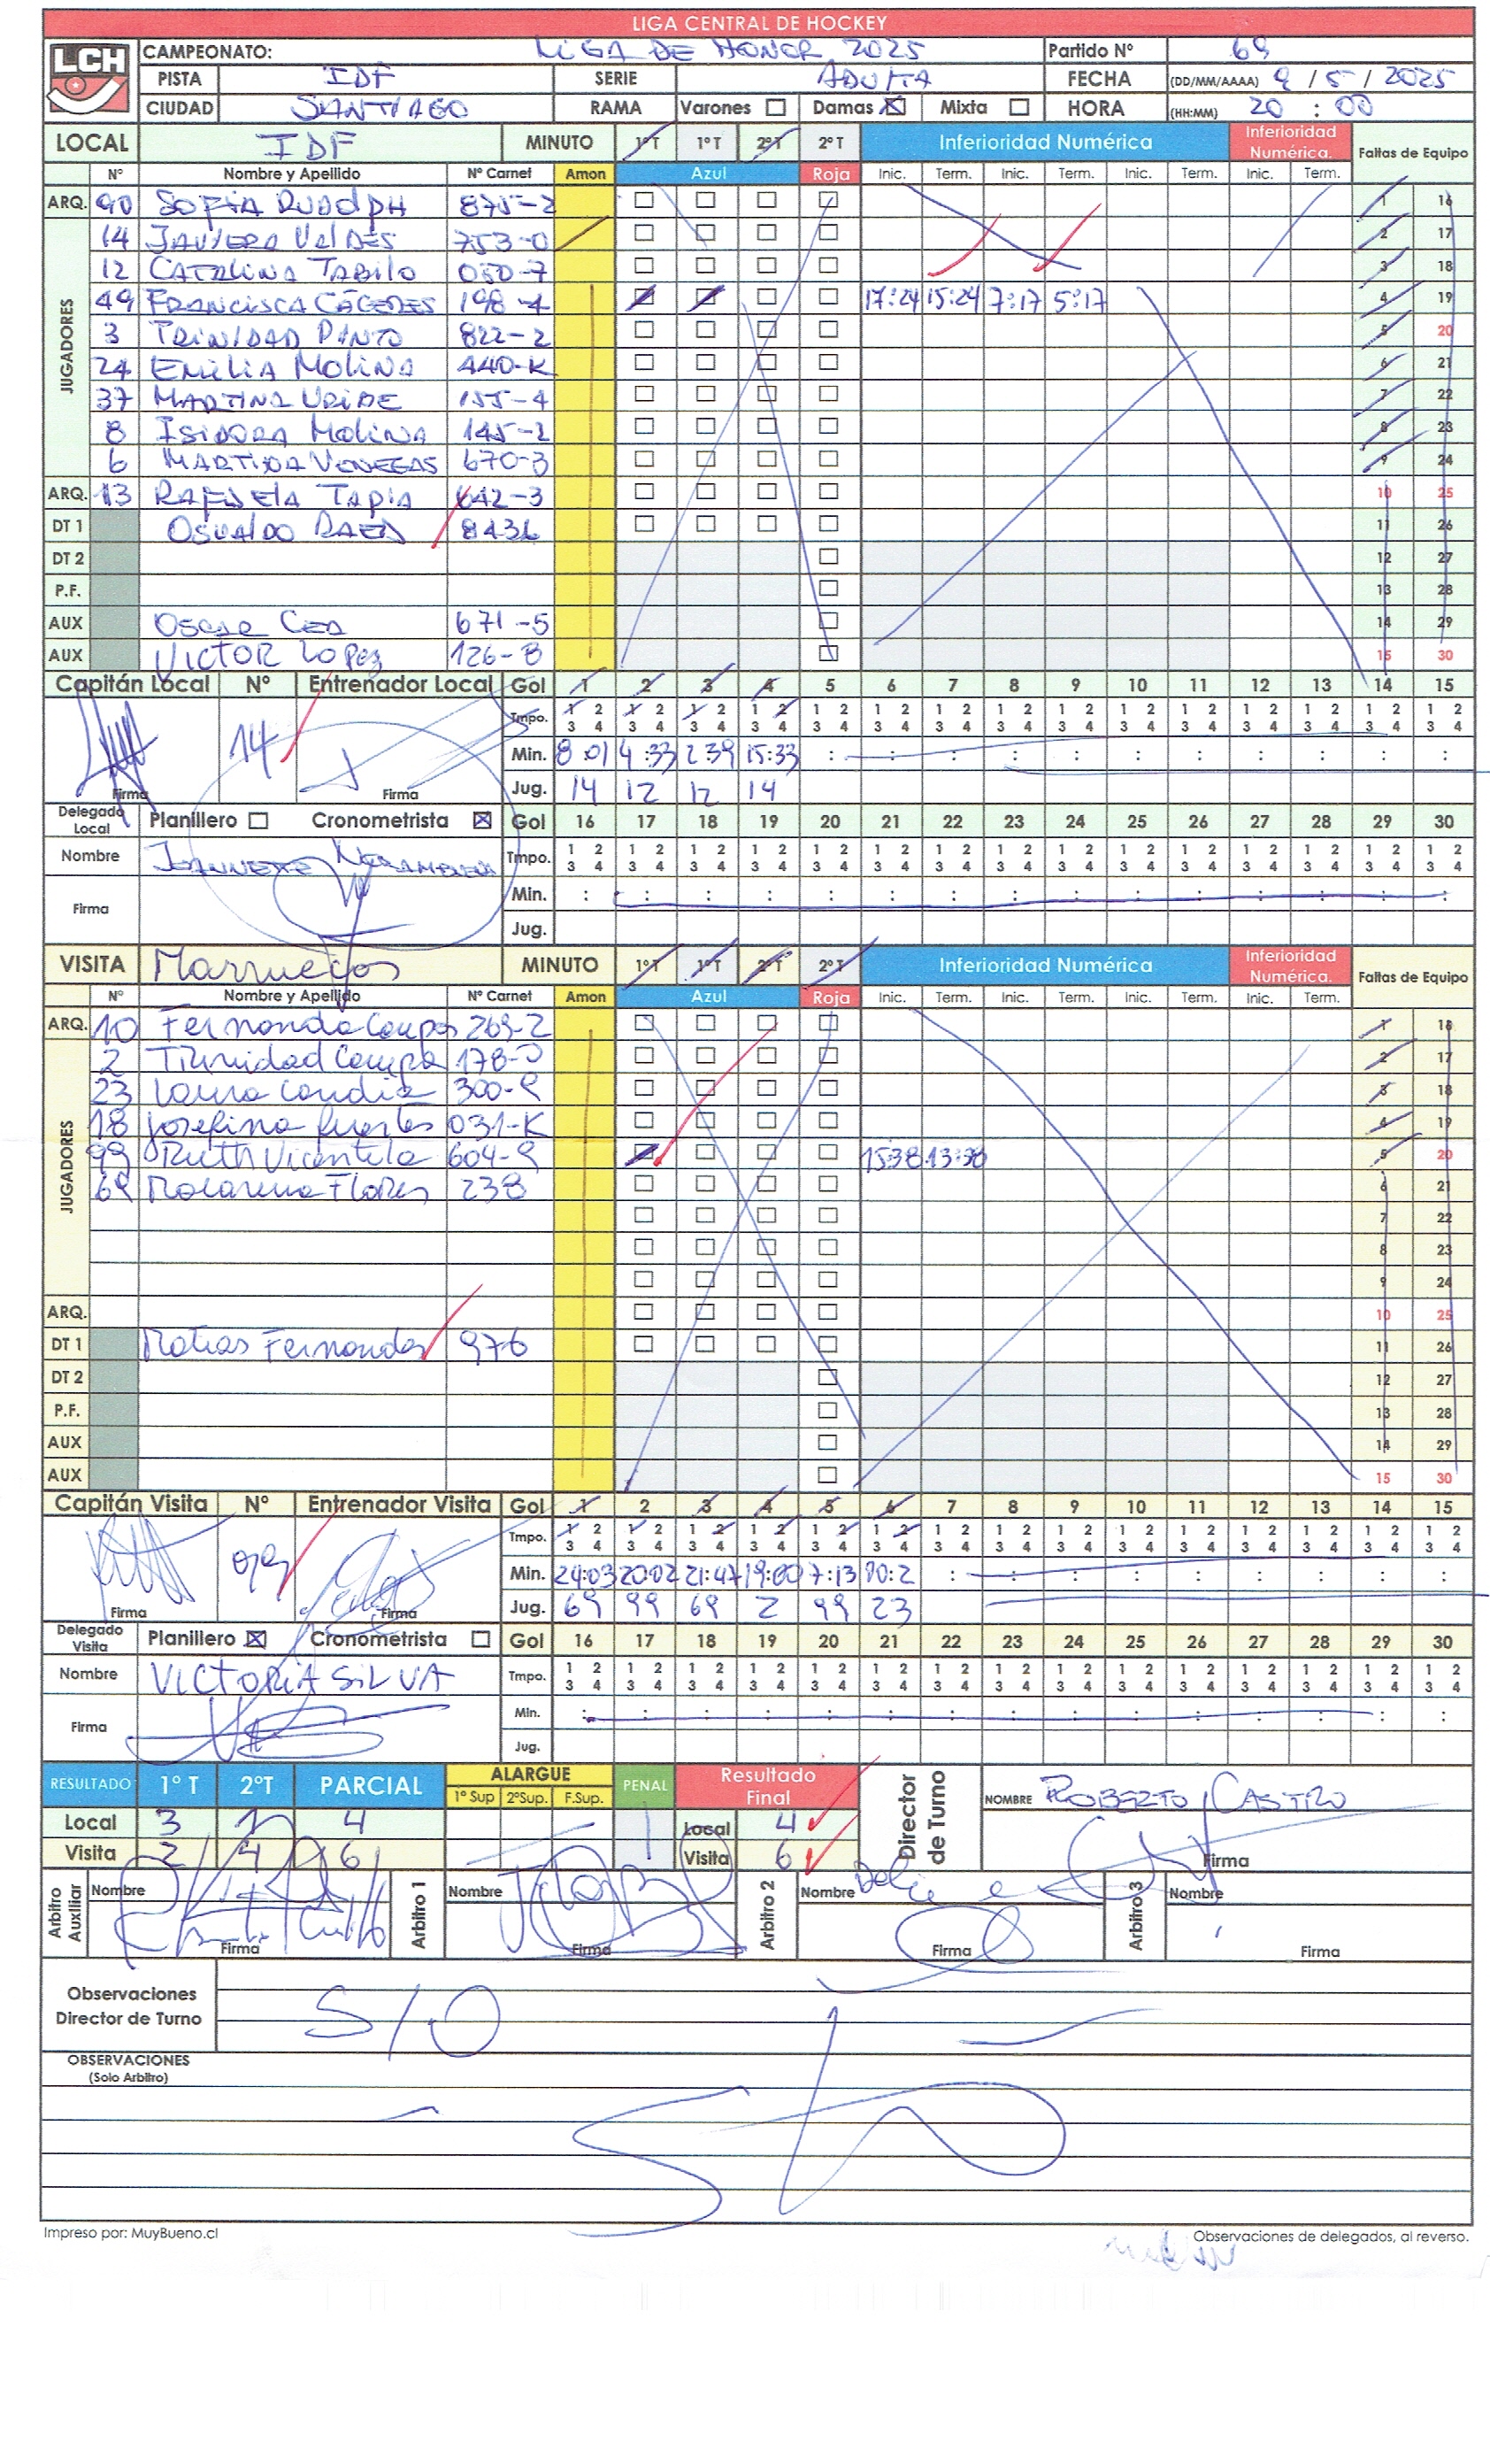 LIGA CENTRAL DE HOCKEY
LCH
CAMPEONATO: LIGA DE HONOR 2025 Partido Nº 69
PISTA IDF SERIE ADULTA FECHA (DD/MM/AAAA) 9 / 5 / 2025
CIUDAD SANTIAGO RAMA Varones Damas Mixta HORA (HH:MM) 20 : 00
LOCAL IDF MINUTO 1ºT 1ºT 2ºT 2ºT Inferioridad Numérica Inferioridad Numérica. Faltas de Equipo
Nº Nombre y Apellido Nº Carnet Amon Azul Roja Inic. Term. Inic. Term. Inic. Term. Inic. Term.
JUGADORES
ARQ. 90 SOFIA RUDOLPH 875-2 1 16
14 JAVIERA VALDES 753-0 2 17
12 CATALINA TABILO 050-7 3 18
49 FRANCISCA CÁCERES 198-4 17:24 15:24 7:17 5:17 4 19
3 TRINIDAD PINTO 822-2 5 20
24 EMILIA MOLINA 440-K 6 21
37 MARTINA URIBE 155-4 7 22
8 ISIDORA MOLINA 145-2 8 23
6 MARTINA VENEGAS 670-3 9 24
ARQ. 13 RAFAELA TAPIA 642-3 10 25
DT 1 OSVALDO 8436 11 26
DT 2 12 27
P.F. 13 28
AUX OSCAR CEA 671-5 14 29
AUX VICTOR LOPEZ 126-8 15 30
Capitán Local Nº Entrenador Local Gol 1 2 3 4 5 6 7 8 9 10 11 12 13 14 15
14 Tmpo. 1 2 1 2 1 2 1 2 1 2 1 2 1 2 1 2 1 2 1 2 1 2 1 2 1 2 1 2 1 2
3 4 3 4 3 4 3 4 3 4 3 4 3 4 3 4 3 4 3 4 3 4 3 4 3 4 3 4 3 4
Min. 8:01 4:33 2:39 15:33 : : : : : : : : : : :
Firma Firma Jug. 14 12 12 14
Delegado Local Planillero Cronometrista Gol 16 17 18 19 20 21 22 23 24 25 26 27 28 29 30
Nombre JEANNETTE Tmpo. 1 2 1 2 1 2 1 2 1 2 1 2 1 2 1 2 1 2 1 2 1 2 1 2 1 2 1 2 1 2
3 4 3 4 3 4 3 4 3 4 3 4 3 4 3 4 3 4 3 4 3 4 3 4 3 4 3 4 3 4
Firma Min. : : : : : : : : : : : : : : :
Jug.
VISITA Marruecos MINUTO 1ºT 1ºT 2ºT 2ºT Inferioridad Numérica Inferioridad Numérica. Faltas de Equipo
Nº Nombre y Apellido Nº Carnet Amon Azul Roja Inic. Term. Inic. Term. Inic. Term. Inic. Term.
JUGADORES
ARQ. 10 Fernanda Campos 269-2 1 16
2 Trinidad Campos 178-0 2 17
23 Laura Candia 300-9 3 18
18 Josefina Fuentes 031-K 4 19
99 Ruth Vicentela 604-9 15:38 13:38 5 20
69 Macarena Flores 238 6 21
7 22
8 23
9 24
ARQ. 10 25
DT 1 Matias Fernandez 976 11 26
DT 2 12 27
P.F. 13 28
AUX 14 29
AUX 15 30
Capitán Visita Nº Entrenador Visita Gol 1 2 3 4 5 6 7 8 9 10 11 12 13 14 15
99 Tmpo. 1 2 1 2 1 2 1 2 1 2 1 2 1 2 1 2 1 2 1 2 1 2 1 2 1 2 1 2 1 2
3 4 3 4 3 4 3 4 3 4 3 4 3 4 3 4 3 4 3 4 3 4 3 4 3 4 3 4 3 4
Min. 24:03 20:02 21:47 19:00 7:13 00:2 : : : : : : : : :
Firma Firma Jug. 69 99 69 2 99 23
Delegado Visita Planillero Cronometrista Gol 16 17 18 19 20 21 22 23 24 25 26 27 28 29 30
Nombre VICTORIA SILVA Tmpo. 1 2 1 2 1 2 1 2 1 2 1 2 1 2 1 2 1 2 1 2 1 2 1 2 1 2 1 2 1 2
3 4 3 4 3 4 3 4 3 4 3 4 3 4 3 4 3 4 3 4 3 4 3 4 3 4 3 4 3 4
Firma Min. : : : : : : : : : : : : : : :
Jug.
RESULTADO 1º T 2ºT PARCIAL ALARGUE 1º Sup 2ºSup. F.Sup. PENAL Resultado Final Director de Turno NOMBRE ROBERTO CASTRO
Local 3 1 4 Local 4
Visita 2 4 6 Visita 6 Firma
Arbitro Auxiliar Nombre Arbitro 1 Nombre Arbitro 2 Nombre Arbitro 3 Nombre
Firma Firma Firma Firma
Observaciones Director de Turno S/O
OBSERVACIONES
(Solo Arbitro)
Impreso por: MuyBueno.cl Observaciones de delegados, al reverso.